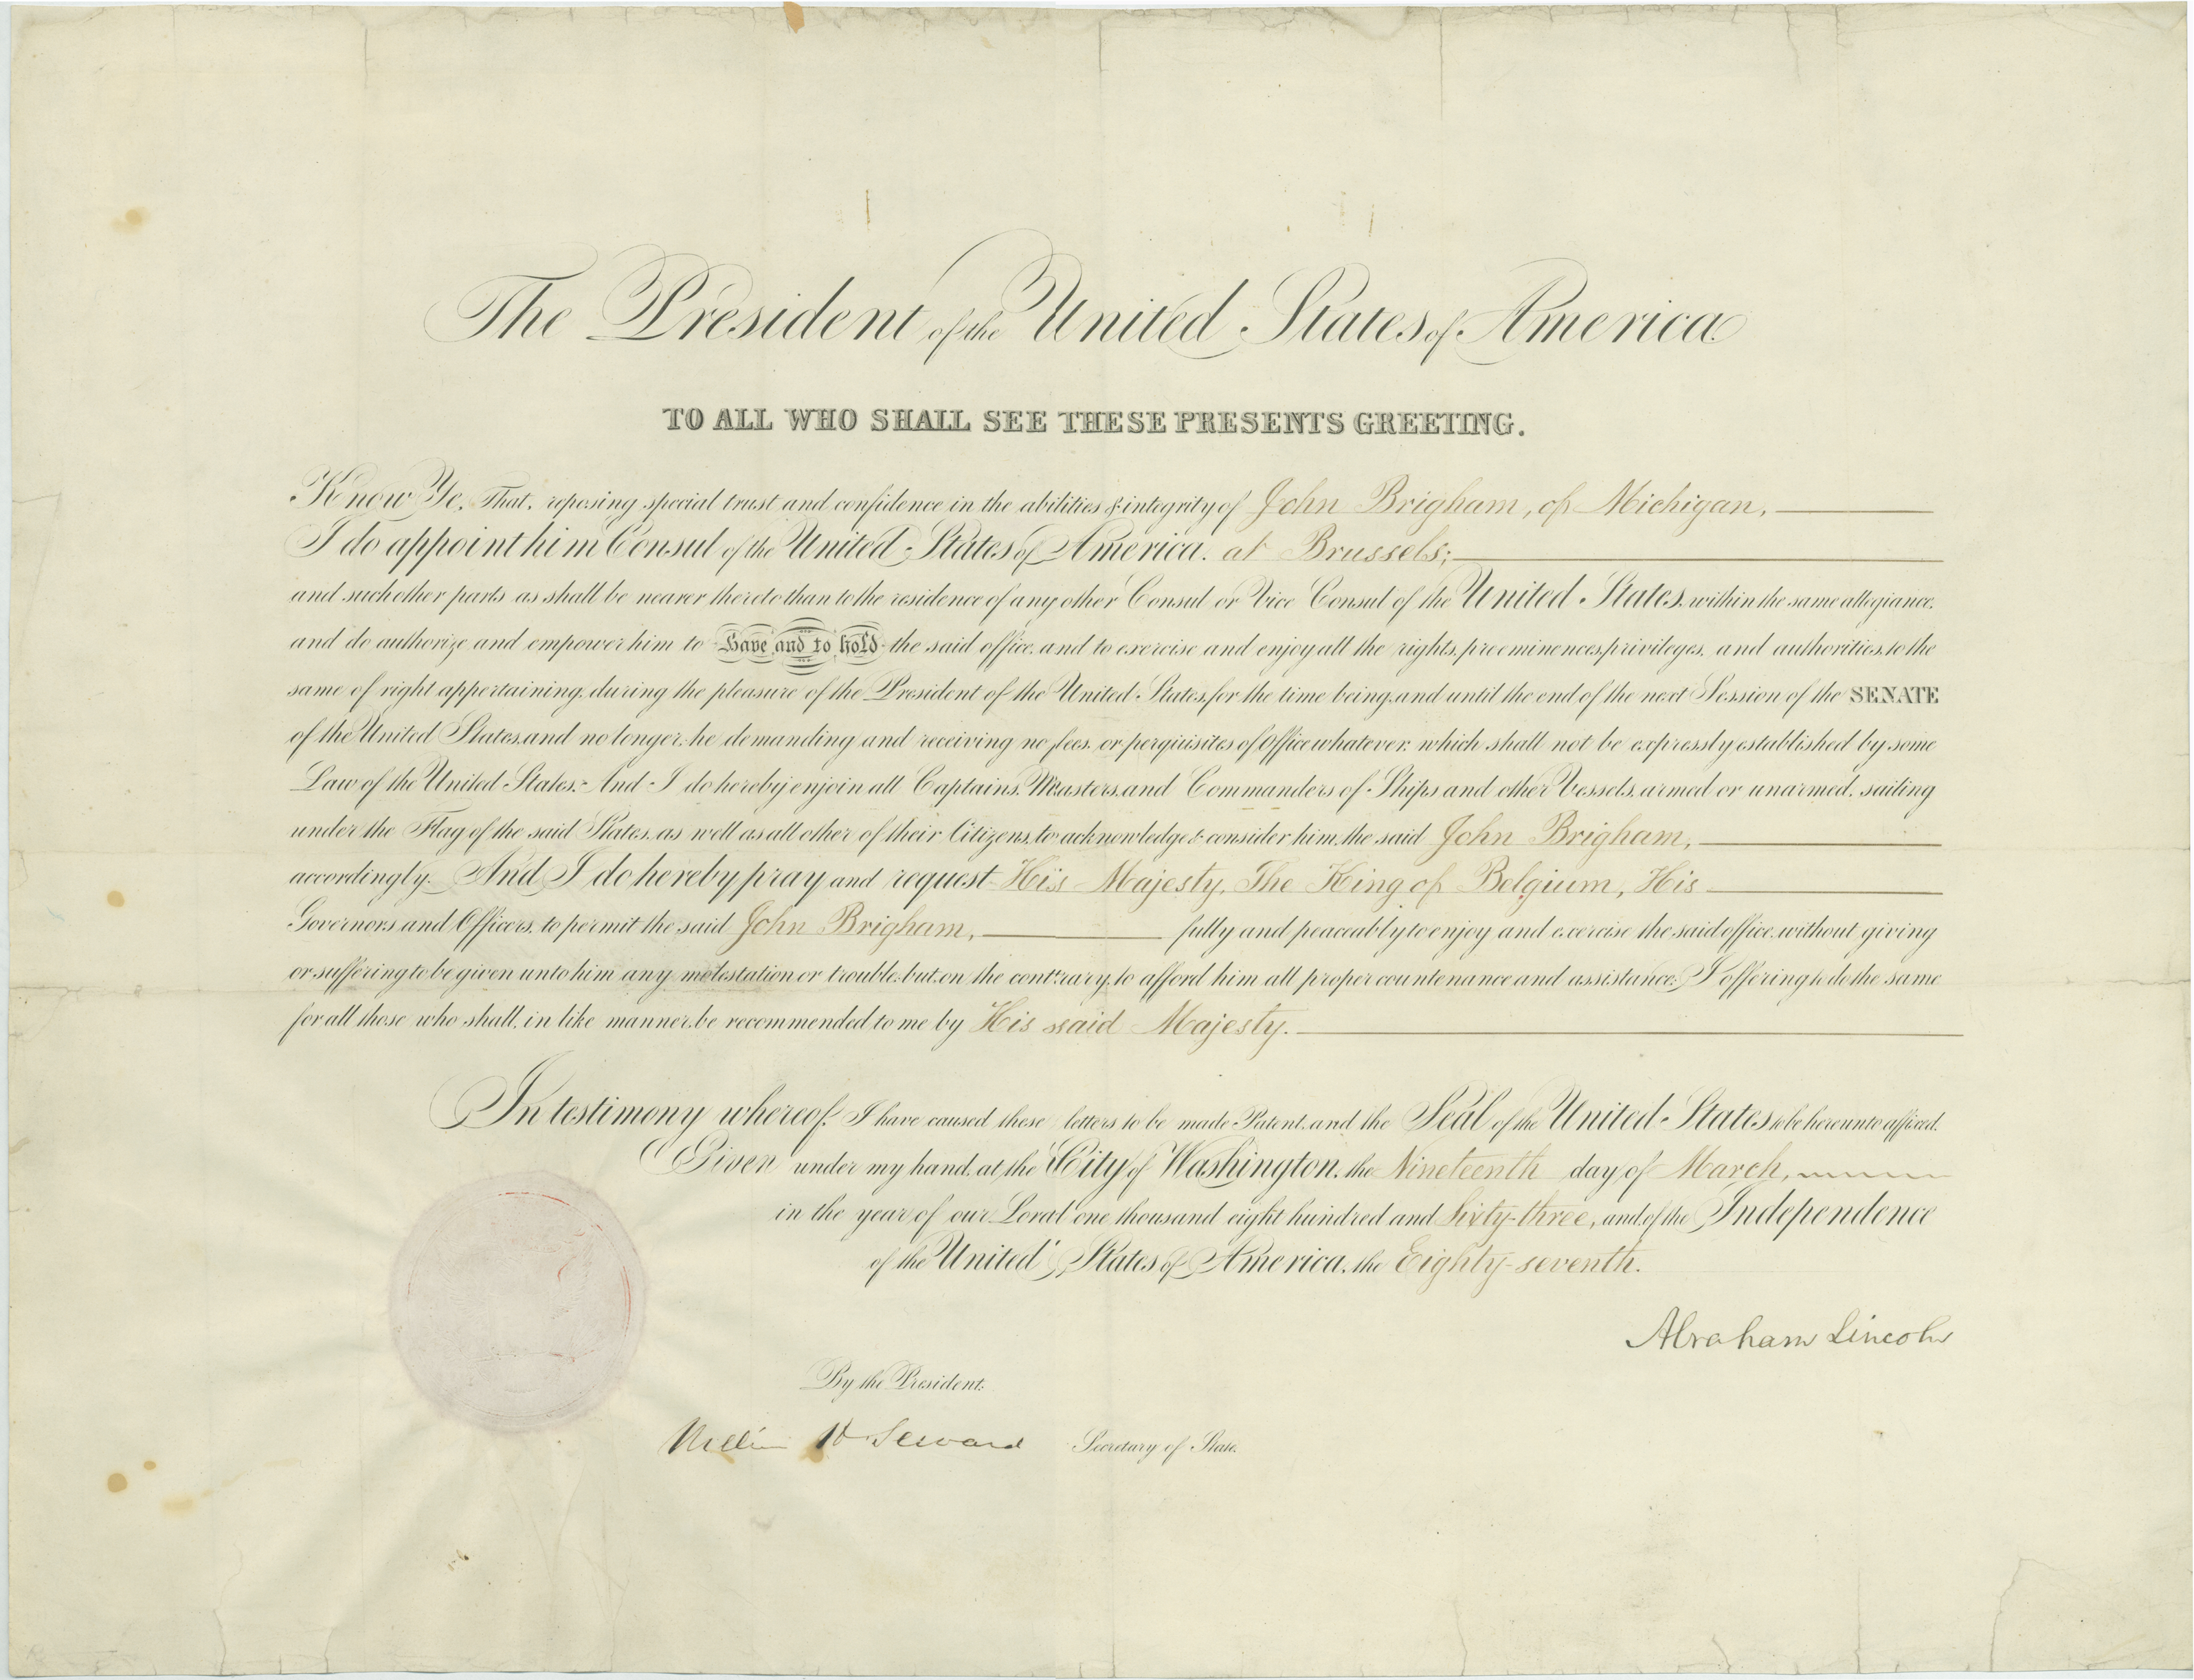 The President of the United States of America.
TO ALL WHO SHALL SEE THESE PRESENTS GREETING.
Know Ye, That, reposing special trust and confidence in the abilities & integrity of John Brigham, of Michigan,
I do appoint him Consul of the United States of America, at Brussels;
and such other parts as shall be nearer thereto than to the residence of any other Consul or Vice Consul of the United States, within the same allegiance,
and do authorize and empower him to Have and to hold the said office, and to exercise and enjoy all the rights, preeminences, privileges, and authorities, to the
same of right appertaining, during the pleasure of the President of the United States, for the time being, and until the end of the next Session of the SENATE
of the United States, and no longer, he demanding and receiving no fees, or perquisites of Office whatever, which shall not be expressly established by some
Law of the United States. And I do hereby enjoin all Captains, Masters, and Commanders of Ships and other Vessels, armed or unarmed, sailing
under the Flag of the said States, as well as all other of their Citizens, to acknowledge & consider him, the said John Brigham,
accordingly. And I do hereby pray and request His Majesty, The King of Belgium, His
Governors and Officers, to permit the said John Brigham, fully and peaceably to enjoy and exercise the said office, without giving
or suffering to be given unto him any molestation or trouble, but, on the contrary, to afford him all proper countenance and assistance; I offering to do the same
for all those who shall, in like manner, be recommended to me by His said Majesty.
In testimony whereof, I have caused these letters to be made Patent, and the Seal of the United States to be hereunto affixed.
Given under my hand, at the City of Washington, the Nineteenth day of March,
in the year of our Lord one thousand eight hundred and Sixty-three, and of the Independence
of the United States of America, the Eighty-seventh.
Abraham Lincoln
By the President.
William H Seward Secretary of State.